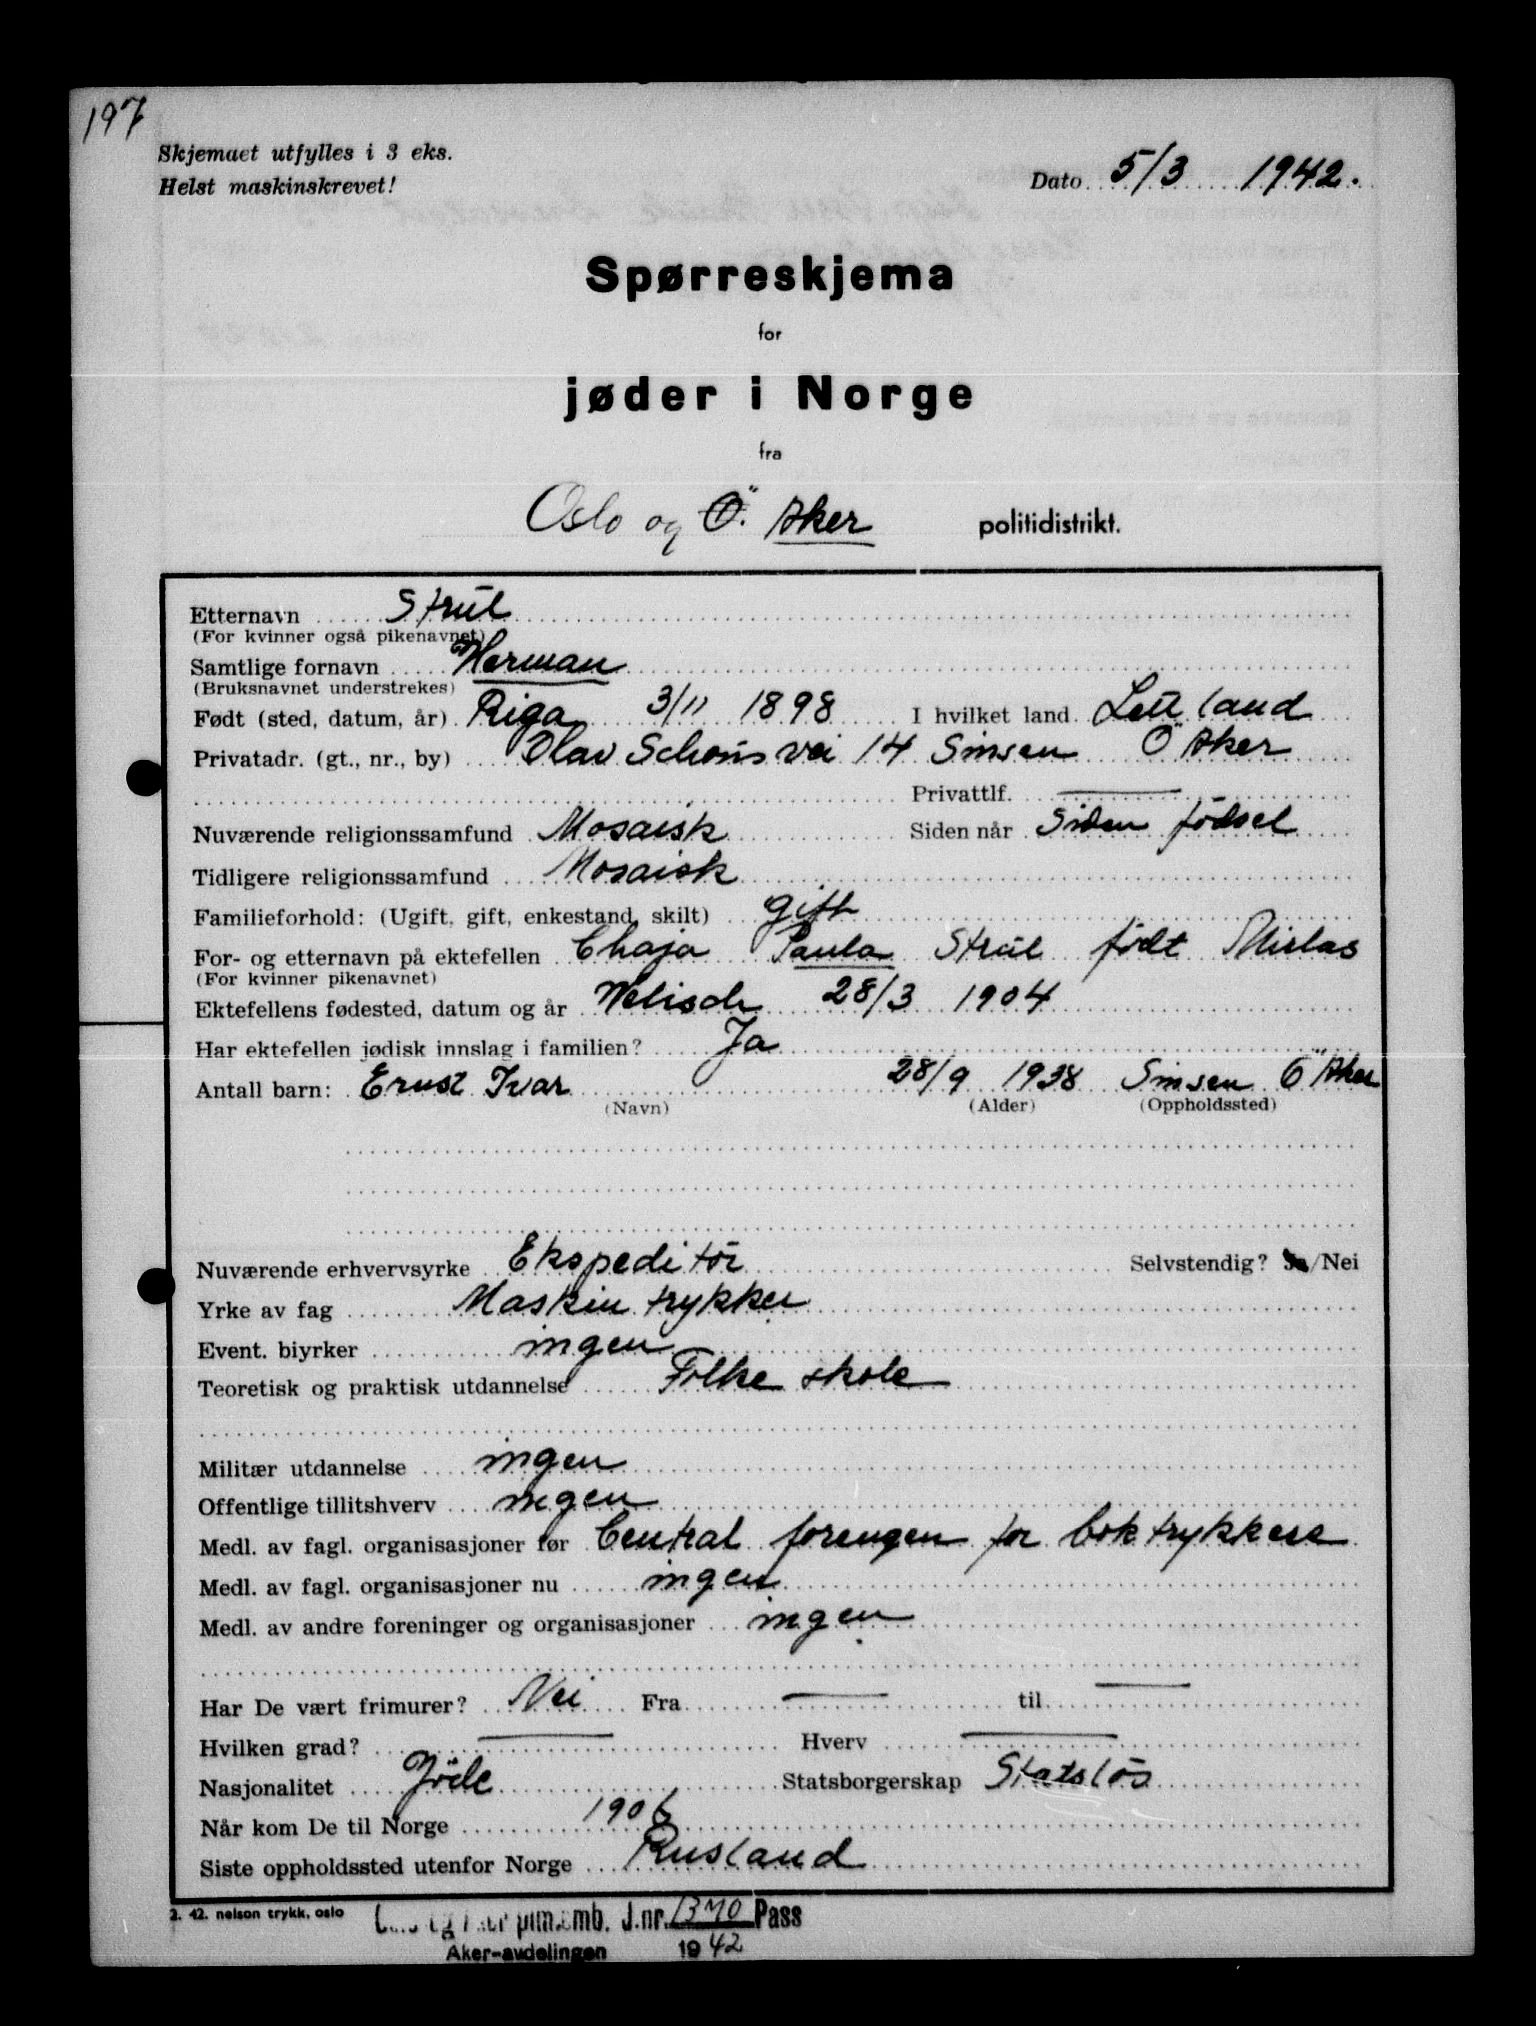 197
Skjemaet utfylles i 3 eks.
Helst maskinskrevet!
Dato 5/3 1942.
Spørreskjema
for
jøder i Norge
fra
Oslo og Ö. Aker politidistrikt.
Etternavn Strül
(For kvinner også pikenavnet)
Samtlige fornavn Herman
(Bruksnavnet understrekes)
Født (sted, datum, år) Riga 3/11 1898 I hvilket land Lettland
Privatadr. (gt., nr., by) Olav Schous vei 14 Sinsen Ö Aker
Privattlf.
Nuværende religionssamfund Mosaisk Siden når Siden födsel
Tidligere religionssamfund Mosaisk
Familieforhold: (Ugift, gift, enkestand, skilt) gift
For- og etternavn på ektefellen Chaja Paula Strül födt Mirlas
(For kvinner pikenavnet)
Ektefellens fødested, datum og år Welisch 28/3 1904
Har ektefellen jødisk innslag i familien? Ja
Antall barn: Ernst Ivar 28/9 1938 Sinsen Ö Aker
(Navn) (Alder) (Oppholdssted)
Nuværende erhvervsyrke Ekspeditör Selvstendig? Ja/Nei
Yrke av fag Maskin trykker
Event. biyrker ingen
Teoretisk og praktisk utdannelse Folke skole
Militær utdannelse ingen
Offentlige tillitshverv ingen
Medl. av fagl. organisasjoner før Central forengen for boktrykkere
Medl. av fagl. organisasjoner nu ingen
Medl. av andre foreninger og organisasjoner ingen
Har De vært frimurer? Nei Fra til
Hvilken grad? Hverv
Nasjonalitet Jöde Statsborgerskap Statslös
Når kom De til Norge 1906
Siste oppholdssted utenfor Norge Rusland
2. 42. nelson trykk, oslo
J.nr. 1370 Pass
Aker-avdelingen 1942